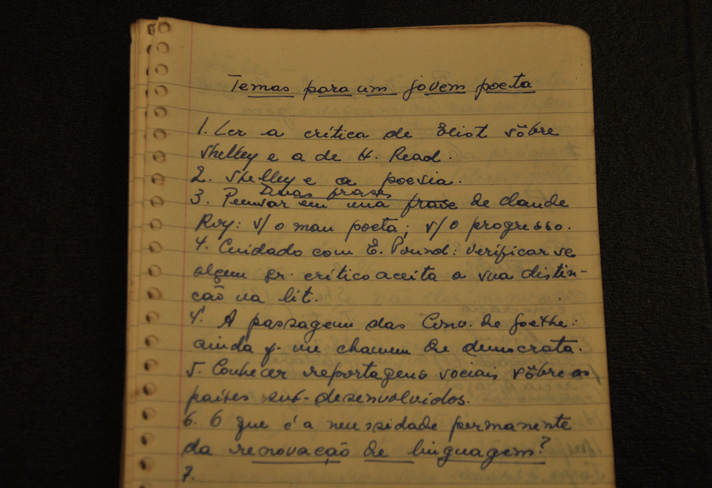 Temas para um jovem poeta
1. Ler a crítica de Eliot sôbre
Shelley e a de H. Read.
2. Shelley e a poesia.
Duas frases
3. Pensar em uma frase de Claude
Roy: s/ o mau poeta; s/ o progresso.
4. Cuidado com E. Pound: verificar se
algum gr. crítico aceita a sua distin-
ção na lit.
4'. A passagem das Conv. de Goethe:
ainda q. me chamem de democrata.
5. Conhecer reportagens sociais sôbre os
países sub-desenvolvidos.
6. O que é a necessidade permanente
da renovação de linguagem?
7.